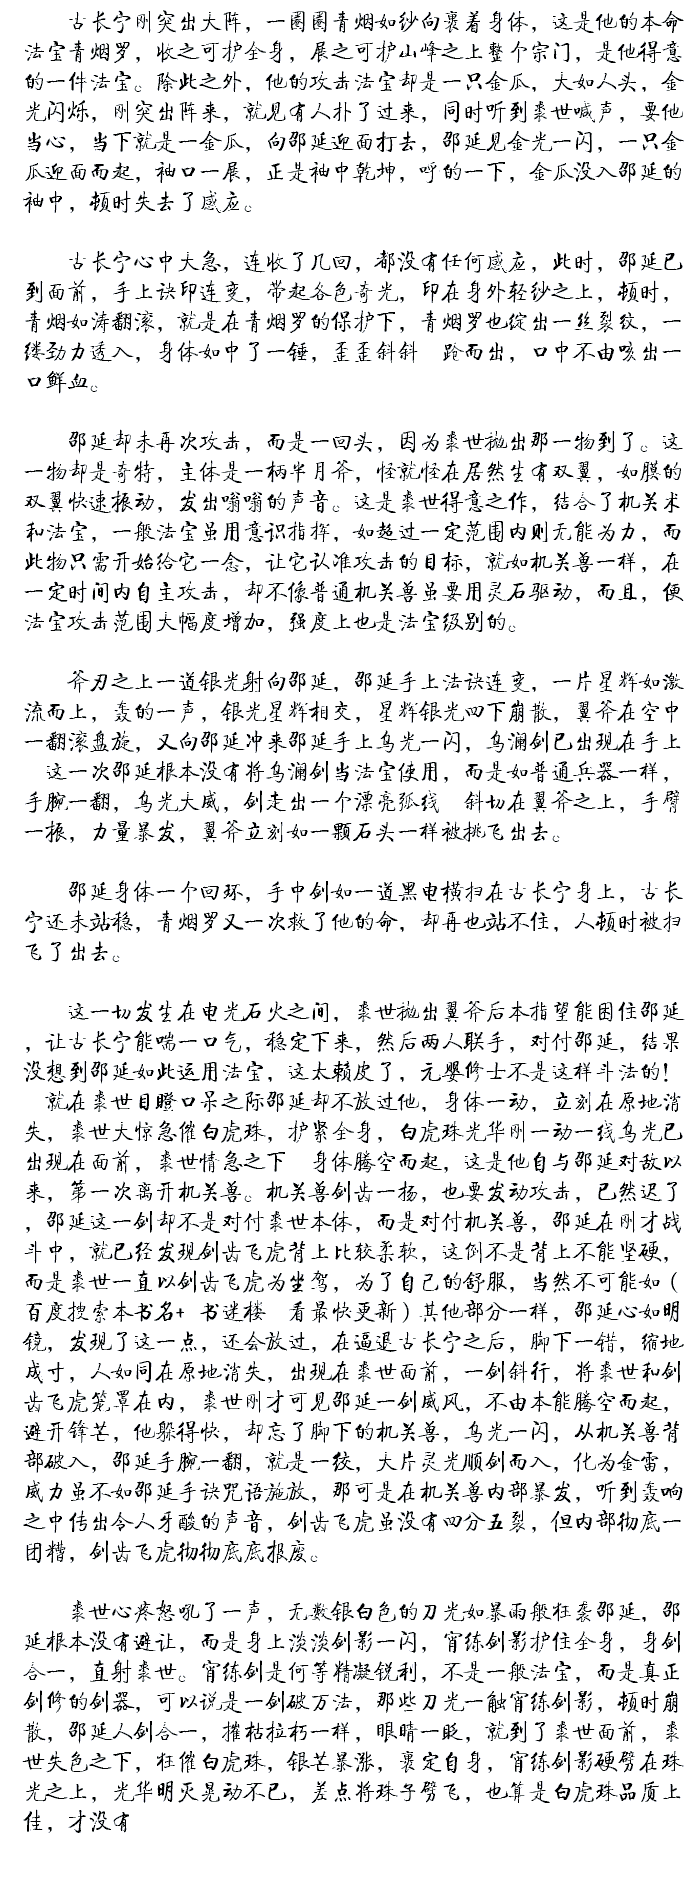 古长宁刚突出大阵，一圈圈青烟如纱向裹着身体，这是他的本命
法宝青烟罗，收之可护全身，展之可护山峰之上整个宗门，是他得意
的一件法宝。除此之外，他的攻击法宝却是一只金瓜，大如人头，金
光闪烁，刚突出阵来，就见有人扑了过来，同时听到裘世喊声，要他
当心，当下就是一金瓜，向邵延迎面打去，邵延见金光一闪，一只金
瓜迎面而起，袖口一展，正是袖中乾坤，呼的一下，金瓜没入邵延的
袖中，顿时失去了感应。
古长宁心中大急，连收了几回，都没有任何感应，此时，邵延已
到面前，手上诀印连变，带起各色奇光，印在身外轻纱之上，顿时，
青烟如涛翻滚，就是在青烟罗的保护下，青烟罗也绽出一丝裂纹，一
缕劲力透入，身体如中了一锤，歪歪斜斜 跄而出，口中不由咳出一
口鲜血。
邵延却未再次攻击，而是一回头，因为裘世抛出那一物到了。这
一物却是奇特，主体是一柄半月斧，怪就怪在居然生有双翼，如膜的
双翼快速振动，发出嗡嗡的声音。这是裘世得意之作，结合了机关术
和法宝，一般法宝虽用意识指挥，如超过一定范围内则无能为力，而
此物只需开始给它一念，让它认准攻击的目标，就如机关兽一样，在
一定时间内自主攻击，却不像普通机关兽虽要用灵石驱动，而且，便
法宝攻击范围大幅度增加，强度上也是法宝级别的。
斧刃之上一道银光射向邵延，邵延手上法诀连变，一片星辉如激
流而上，轰的一声，银光星辉相交，星辉银光四下崩散，翼斧在空中
一翻滚盘旋，又向邵延冲来邵延手上乌光一闪，乌澜剑已出现在手上
这一次邵延根本没有将乌澜剑当法宝使用，而是如普通兵器一样，
手腕一翻，乌光大威，剑走出一个漂亮弧线 斜切在翼斧之上，手臂
一振，力量暴发，翼斧立刻如一颗石头一样被挑飞出去。
邵延身体一个回环，手中剑如一道黑电横扫在古长宁身上，古长
宁还未站稳，青烟罗又一次救了他的命，却再也站不住，人顿时被扫
飞了出去。
这一切发生在电光石火之间，裘世抛出翼斧后本指望能困住邵延
，让古长宁能喘一口气，稳定下来，然后两人联手，对付邵延，结果
没想到邵延如此运用法宝，这太赖皮了，元婴修士不是这样斗法的！
就在裘世目瞪口呆之际邵延却不放过他，身体一动，立刻在原地消
失，裘世大惊急催白虎珠，护紧全身，白虎珠光华刚一动一线乌光已
出现在面前，裘世情急之下 身体腾空而起，这是他自与邵延对敌以
来，第一次离开机关兽。机关兽剑齿一扬，也要发动攻击，已然迟了
，邵延这一剑却不是对付裘世本体，而是对付机关兽，邵延在刚才战
斗中，就已经发现剑齿飞虎背上比较柔软，这倒不是背上不能坚硬，
而是裘世一直以剑齿飞虎为坐驾，为了自己的舒服，当然不可能如（
百度搜索本书名+ 书迷楼 看最快更新）其他部分一样，邵延心如明
镜，发现了这一点，还会放过，在逼退古长宁之后，脚下一错，缩地
成寸，人如同在原地消失，出现在裘世面前，一剑斜行，将裘世和剑
齿飞虎笼罩在内，裘世刚才可见邵延一剑威风，不由本能腾空而起，
避开锋芒，他躲得快，却忘了脚下的机关兽，乌光一闪，从机关兽背
部破入，邵延手腕一翻，就是一绞，大片灵光顺剑而入，化为金雷，
威力虽不如邵延手诀咒语施放，那可是在机关兽内部暴发，听到轰响
之中传出令人牙酸的声音，剑齿飞虎虽没有四分五裂，但内部彻底一
团糟，剑齿飞虎彻彻底底报废。
裘世心疼怒吼了一声，无数银白色的刀光如暴雨般狂袭邵延，邵
延根本没有避让，而是身上淡淡剑影一闪，宵练剑影护住全身，身剑
合一，直射裘世。宵练剑是何等精凝锐利，不是一般法宝，而是真正
剑修的剑器，可以说是一剑破万法，那些刀光一触宵练剑影，顿时崩
散，邵延人剑合一，摧枯拉朽一样，眼睛一眨，就到了裘世面前，裘
世失色之下，狂催白虎珠，银芒暴涨，裹定自身，宵练剑影硬劈在珠
光之上，光华明灭晃动不已，差点将珠子劈飞，也算是白虎珠品质上
佳，才没有